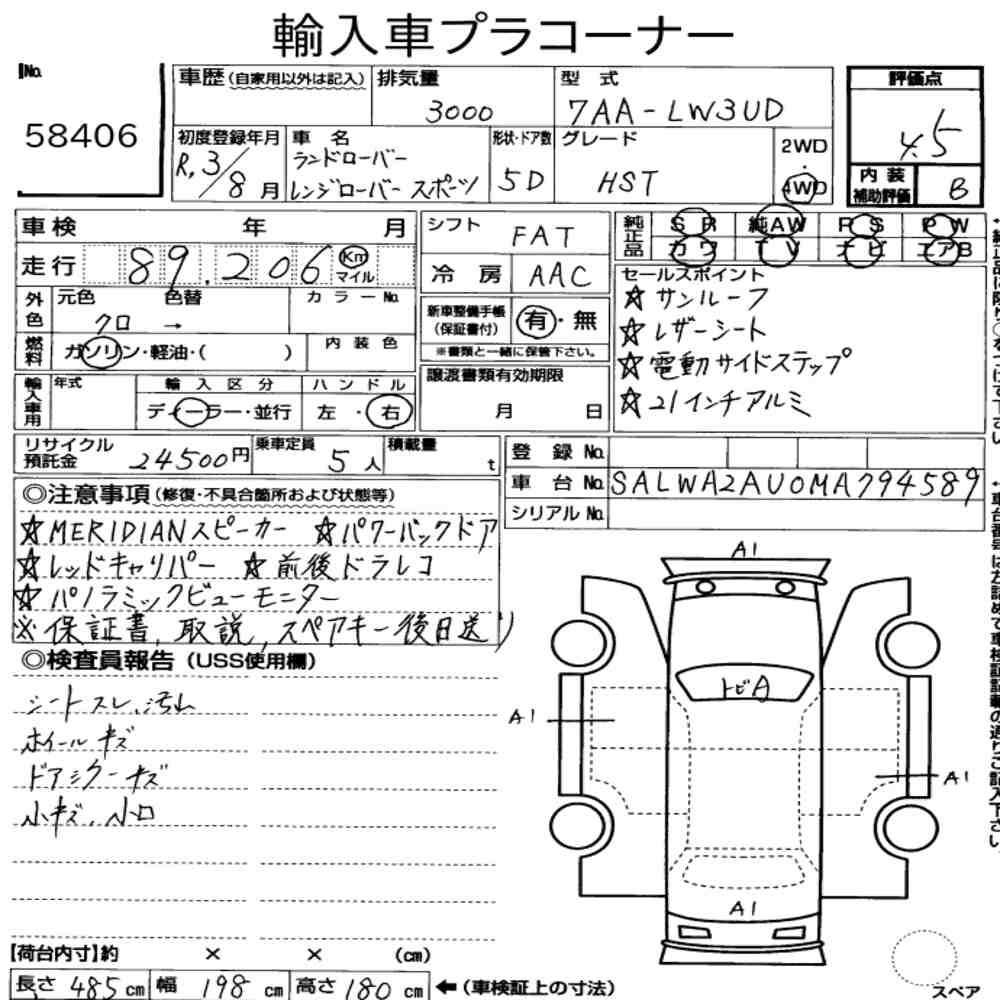 輸入車プラコーナー
No. 58406
車歴(自家用以外は記入) 排気量 3000 型式 7AA-LW3UD
初度登録年月 R.3/8月 車名 ランドローバー レンジローバー スポーツ 形状・ドア数 5D グレード HST 2WD・4WD
評価点 4.5
内装補助評価 B
車検 年 月
走行 89,206 Km マイル
外色 元色 クロ → 色替 カラーNo.
燃料 ガソリン・軽油・( ) 内装色
輸入車用 年式 輸入区分 ディーラー・並行 ハンドル 左・右
シフト FAT
冷房 AAC
新車整備手帳(保証書付) 有・無
※書類と一緒に保管下さい。
譲渡書類有効期限 月 日
純正品 SR 純AW PS PW
カワ TV ナビ エアB
セールスポイント
☆サンルーフ
☆レザーシート
☆電動サイドステップ
☆21インチアルミ
リサイクル預託金 24500円 乗車定員 5人 積載量 t
登録No.
車台No. SALWA2AU0MA794589
シリアルNo.
◎注意事項(修復・不具合箇所および状態等)
☆MERIDIANスピーカー ☆パワーバックドア
☆レッドキャリパー ☆前後ドラレコ
☆パノラミックビューモニター
※保証書、取説、スペアキー後日送り
◎検査員報告(USS使用欄)
シートスレ、汚れ
ホイールキズ
ドアミラーキズ
小キズ、小凹
A1
トビA
A1
A1
A1
スペア
【荷台内寸】約 × × (cm)
長さ 485 cm 幅 198 cm 高さ 180 cm ←(車検証上の寸法)